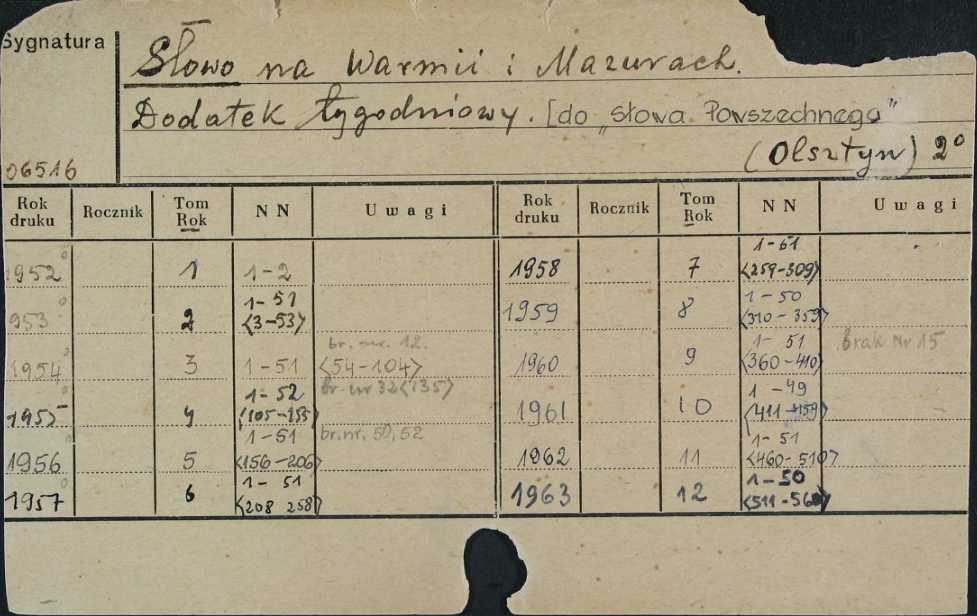 Sygnatura
Słowo na Warmii i Mazurach.
Dodatek tygodniowy. [do „Słowa Powszechnego”
(Olsztyn) 2°
06516
Rok druku Rocznik Tom Rok NN Uwagi Rok druku Rocznik Tom Rok NN Uwagi
1952 1 1-2 1958 7 1-51 <259-309>
1953 2 1-51 <3-53> 1959 8 1-50 <310-359>
1954 3 1-51 <54-104> br. nr. 12. 1960 9 1-51 <360-410> brak Nr 15
1955 4 1-52 br. nr 32 <135> 1961 10 1-49 <411-459>
1956 5 1-51 <156-206> br. nr. 50, 52 1962 11 1-51 <460-510>
1957 6 1-51 <208 258> 1963 12 1-50